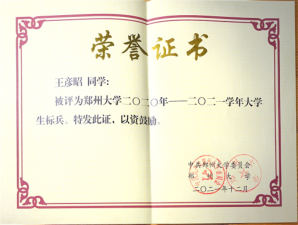 荣誉证书
王彦昭 同学:
被评为郑州大学二〇二〇年——二〇二一学年大学
生标兵。特发此证，以资鼓励。
中共郑州大学委员会
郑州大学
二〇二一年十二月